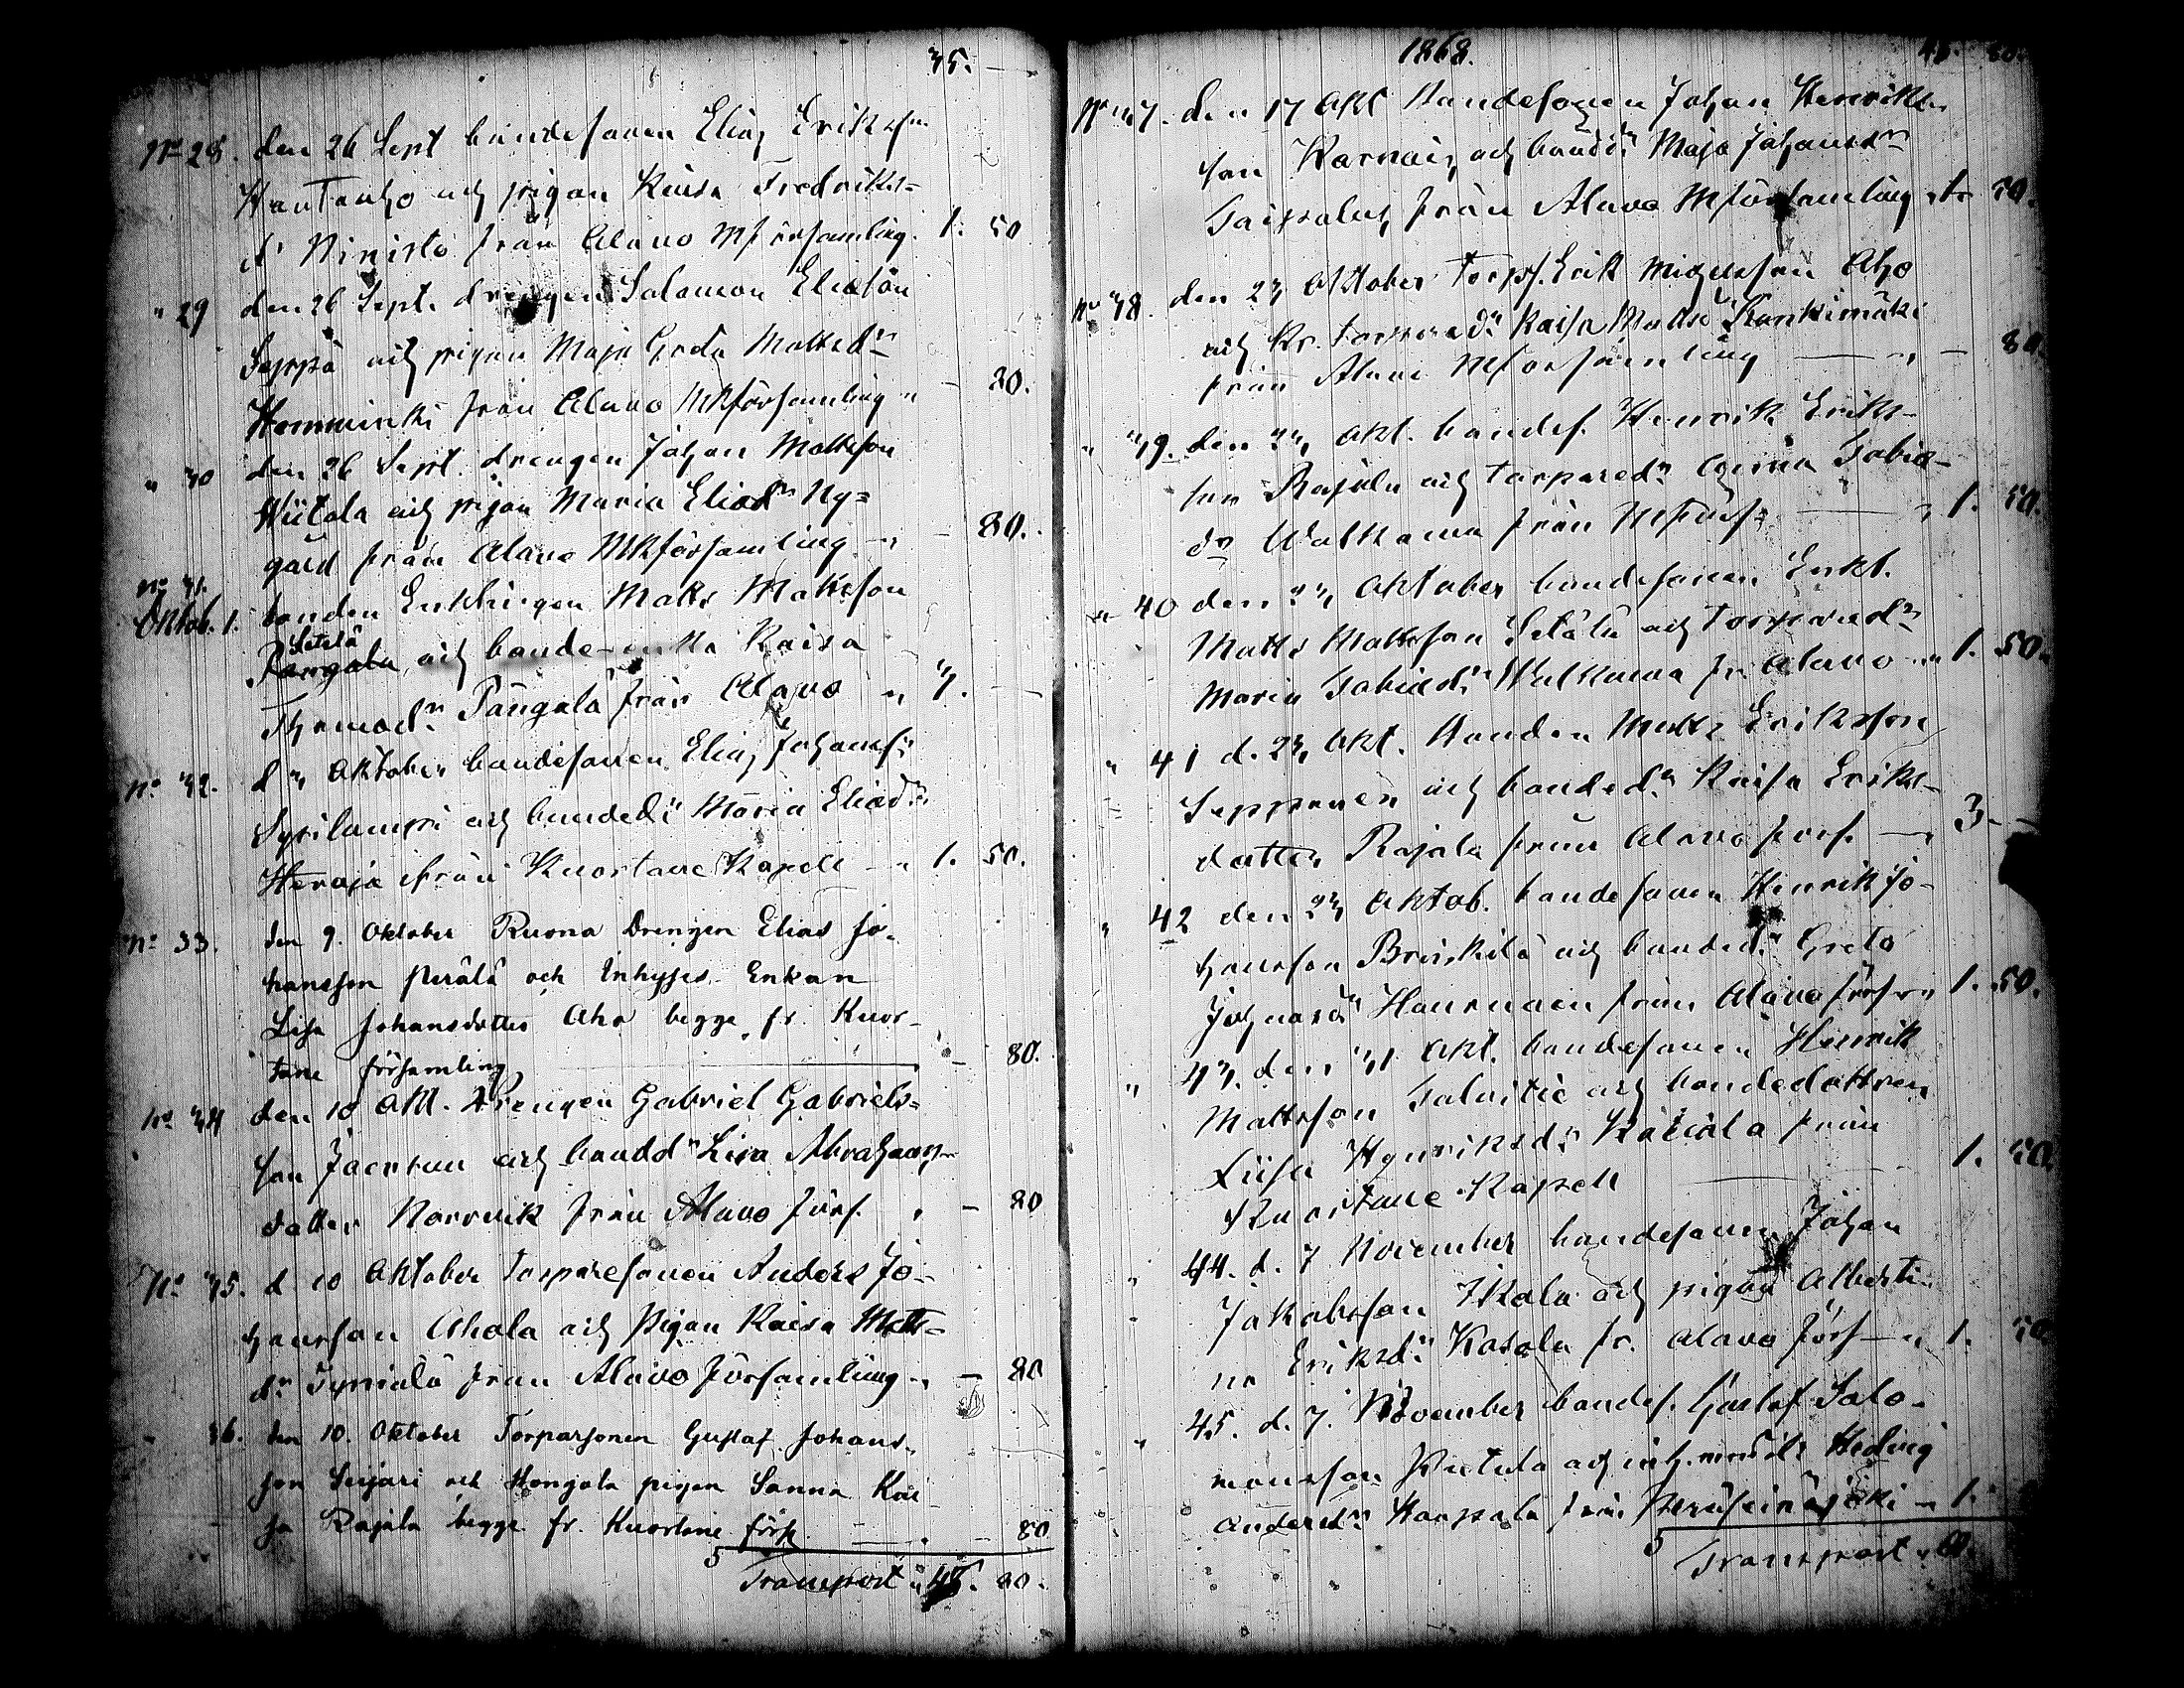 35. —
No 28. den 26 Sept bondesonen Elias Eriksson
Hautanho och pigan Kaisa Fredriks=
dr Ninistö från Alavo Mförsamling. 1. 50
" 29 den 26 Sept. drengen Salomon Eliasson
Seppä och pigan Maja Greta Mattsdr
Hemminki från Alavo Mkförsamling " — 80.
" 30 den 26 Sept. drengen Johan Mattsson
Wiitala och pigan Maria Eliadr Ny=
gård från Alavo Mkförsamling — " — 80.
No 31.
Oktob. 1. bonden Enklingen Matts Mattsson
Setelä
Pangala, och bonde-enka Kaisa
Thomasdr Pangala från Alavo " 3. —
No 32. d 3 Oktober bondesonen Elias Johanss:
Syrilampi och bondedr Maria Eliadr
Heroja från Kuortane Kapell — " 1. 50.
No 33. den 9. Oktober Ruona Drengen Elias Jo-
hansson Perälä och Inhyses Enkan
Lisa Johansdotter Aho begge fr. Kuor-
tane församling — 80.
No 34 den 10 Okt. Drengen Gabriel Gabriels=
son och bondd Lisa Abrahams
dotter Norrvik från Alavo förs. " — 80
No 35. d 10 Oktober Torparesonen Anders Jo-
hansson Ahola och Pigan Kaisa Matts=
dr från Alavo församling " — 80
" 36. den 10. Oktober Torparsonen Gustaf Johans-
son Seijari och Hongola pigan Sanna Kai
sa Rajala begge fr. Kuortane förs. — " — 80
Transport " 45. 80.
1868. 45. 80.
No 37. den 17 Okt Bondesonen Johan Henriks
son och bondedr Maja Johansdr
Taipalus från Alavo Mförsamling 1. 50.
No 38. den 23 Oktober Torps. Erik Michelsson Aho
och Kr. torparedr Kaisa Mattsdr Kankimäki
från Alavo Mförsamling — " — 80.
" 39. den 23 Okt. bondes. Henrik Eriks-
son Rajala och torparedr Tobias-
dr Walkama från Mförs: — " 1. 50.
" 40 den 23 Oktober bondesonen Enkl.
Matts Mattsson Setälä och Torparedr
Maria Tobiasdr Walkama fr. Alavo — " 1. 50.
" 41 d. 23 Okt. Bonden Matts Eriksson
Seppänen och bondedr Kaisa Eriks-
dotter Rajala från Alavo förs. — " 3. —
" 42 den 23 Oktob. bondesonen Henrik Jo-
hansson och bondedr Greta
Johansdr från Alavo förs. — " 1. 50.
" 43. den 31 Okt. bondesonen Henrik
Mattsson och bondedottren
Liisa Henriksdr från
Kuortane Kapell — 1. 50
" 44. d. 7 November bondesonen Johan
Jakobsson Ikola och pigan Alberti-
na Eriksdr Kosola fr. Alavo förs — " 1. 50
" 45. d. 7. November bondes. Gustaf Salo-
monsson och inh. Hedvig
Andersdr Haapala från Peräseinäjoki — 1.
Transport " 60.